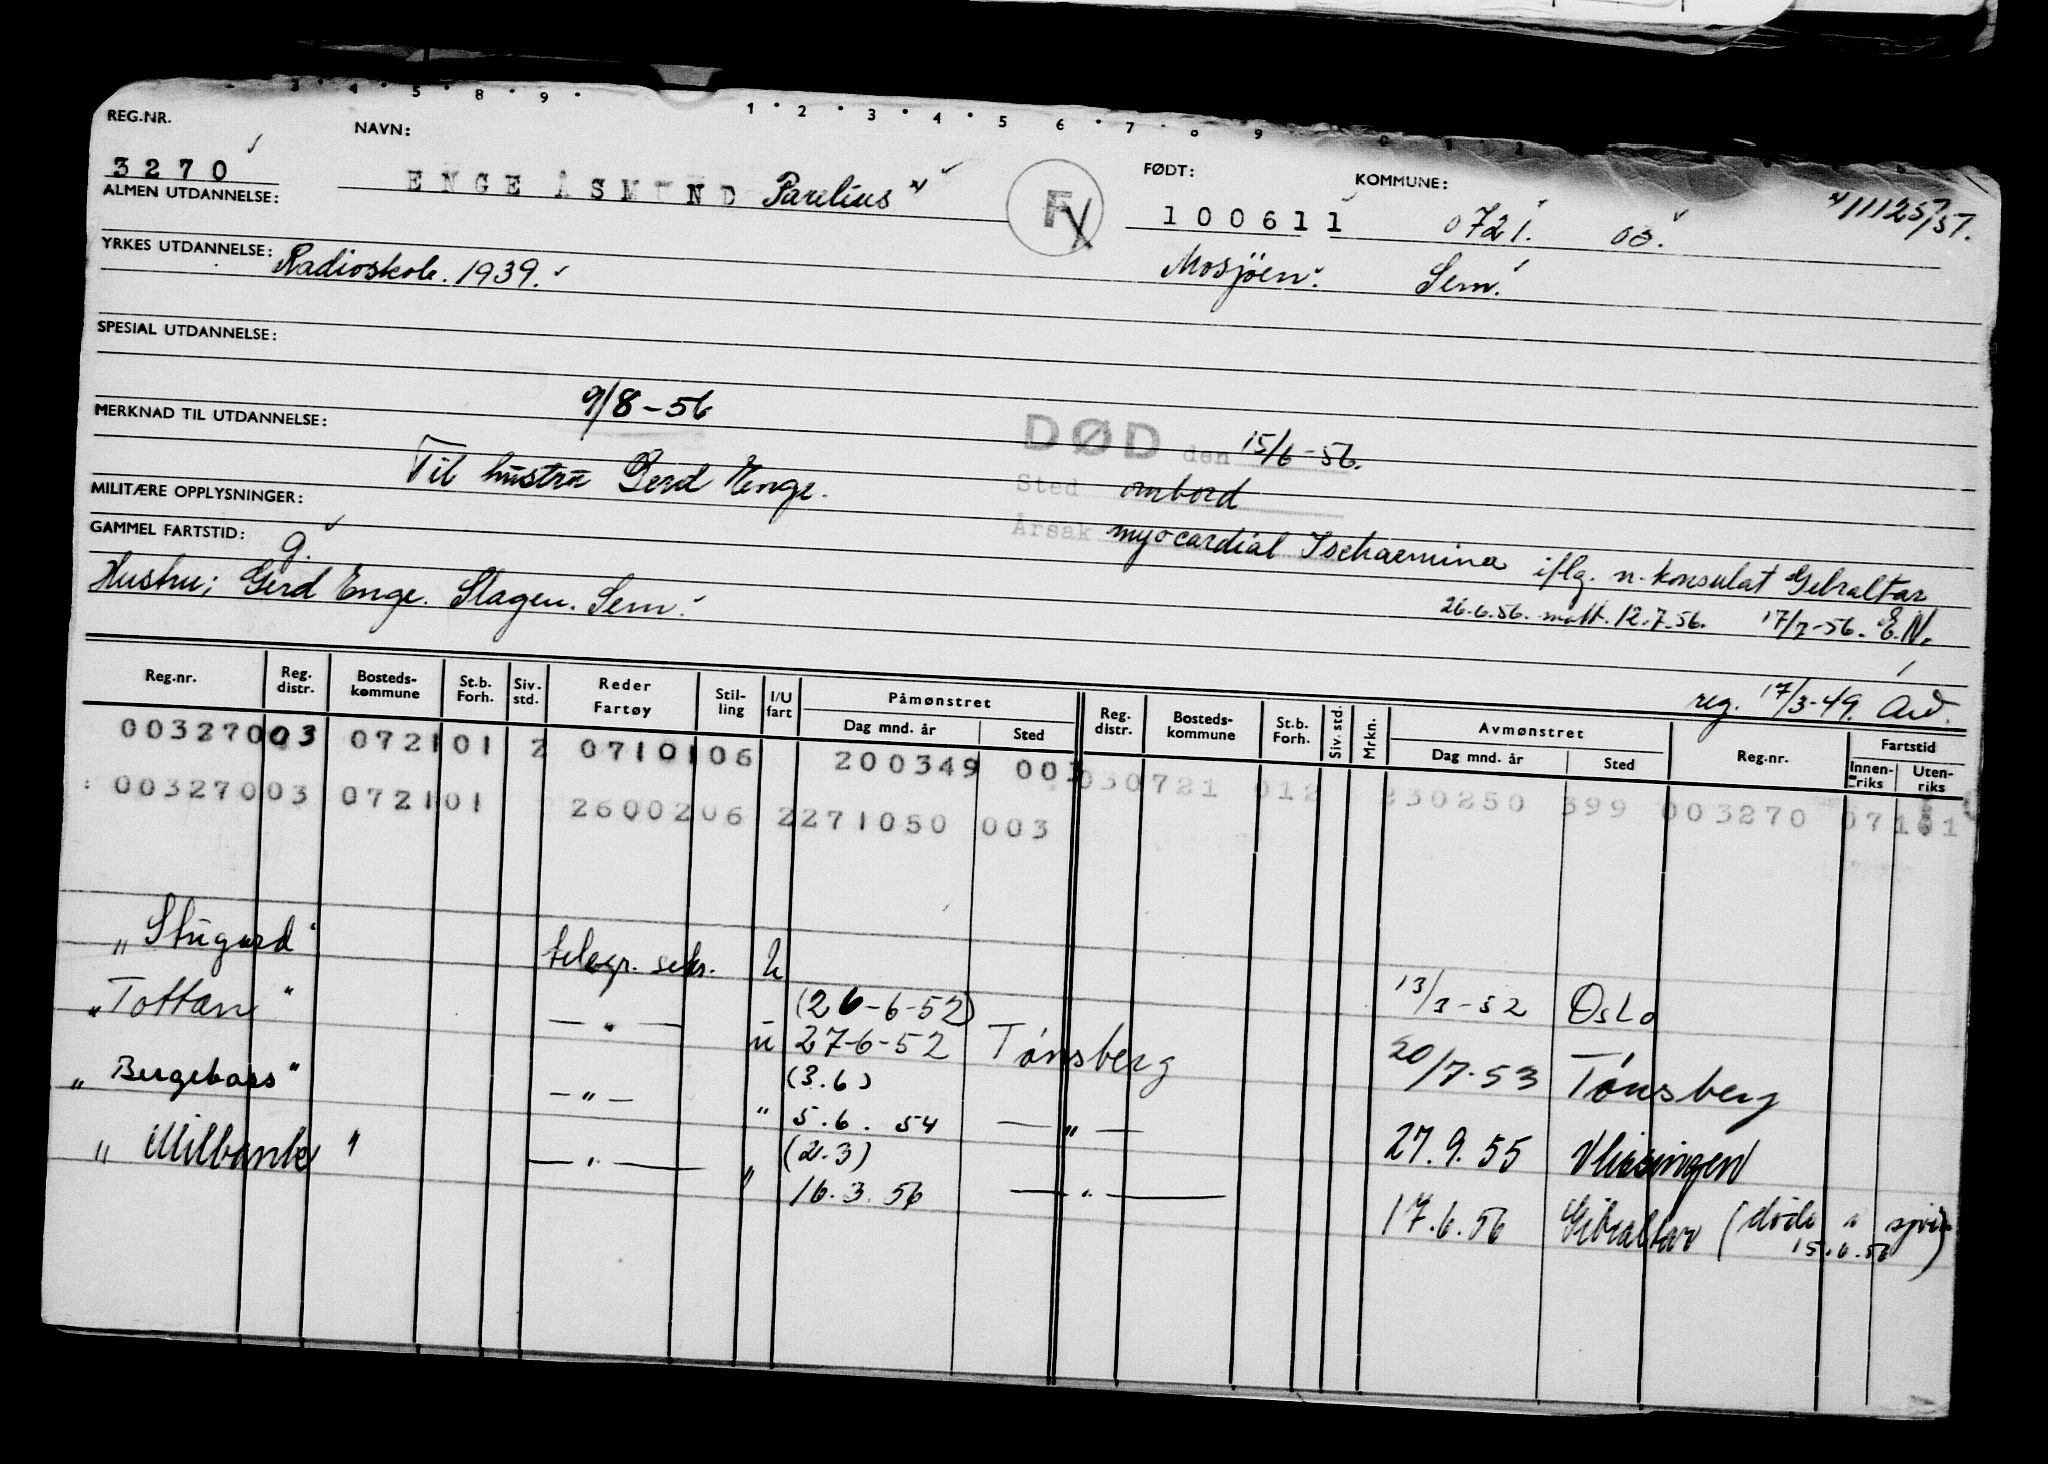 REG.NR.
NAVN:
3270
ENGE ÅSMUND Parelius
F
FØDT:
KOMMUNE:
100611
0721.
03.
11125/57.
ALMEN UTDANNELSE:
YRKES UTDANNELSE:
Radioskole. 1939.
Mosjöen.
Sem.
SPESIAL UTDANNELSE:
9/8-56
MERKNAD TIL UTDANNELSE:
DØD den 15/6-56.
Til hustru Gerd Enge.
Sted ombord
MILITÆRE OPPLYSNINGER:
Årsak myocardial Ischaemina iflg. n. konsulat Gibraltar
GAMMEL FARTSTID: g.
26.6.56. mott. 12.7.56. 17/7-56. E.N.
Hustru; Gerd Enge. Slagen. Sem.
reg. 17/3-49.
Reg.nr.
Reg. distr.
Bosteds-kommune
St.b. Forh.
Siv. std.
Reder Fartøy
Stil-ling
I/U fart
Påmønstret
Dag mnd. år
Sted
Reg. distr.
Bosteds-kommune
St.b. Forh.
Siv. std.
Mrkn.
Avmønstret
Dag mnd. år
Sted
Reg.nr.
Fartstid
Innen-riks
Uten-riks
003270 03 0721 01 2 07101 06 200349 003
003270 03 0721 01 26002 06 2 271050 003
03 0721 012 230250 399 003270
"Stugard" telegr. sekr. u 13/3-52 Oslo
"Tottan" — " — u (26-6-52) 27-6-52 Tønsberg 20/7-53 Tønsberg
"Bergeboss" — " — " (3.6) 5.6.54 — " — 27.9.55 Vlissingen
"Milbank" — " — " (2.3) 16.3.56 — " — 17.6.56 Gibraltar (døde 15.6.56)